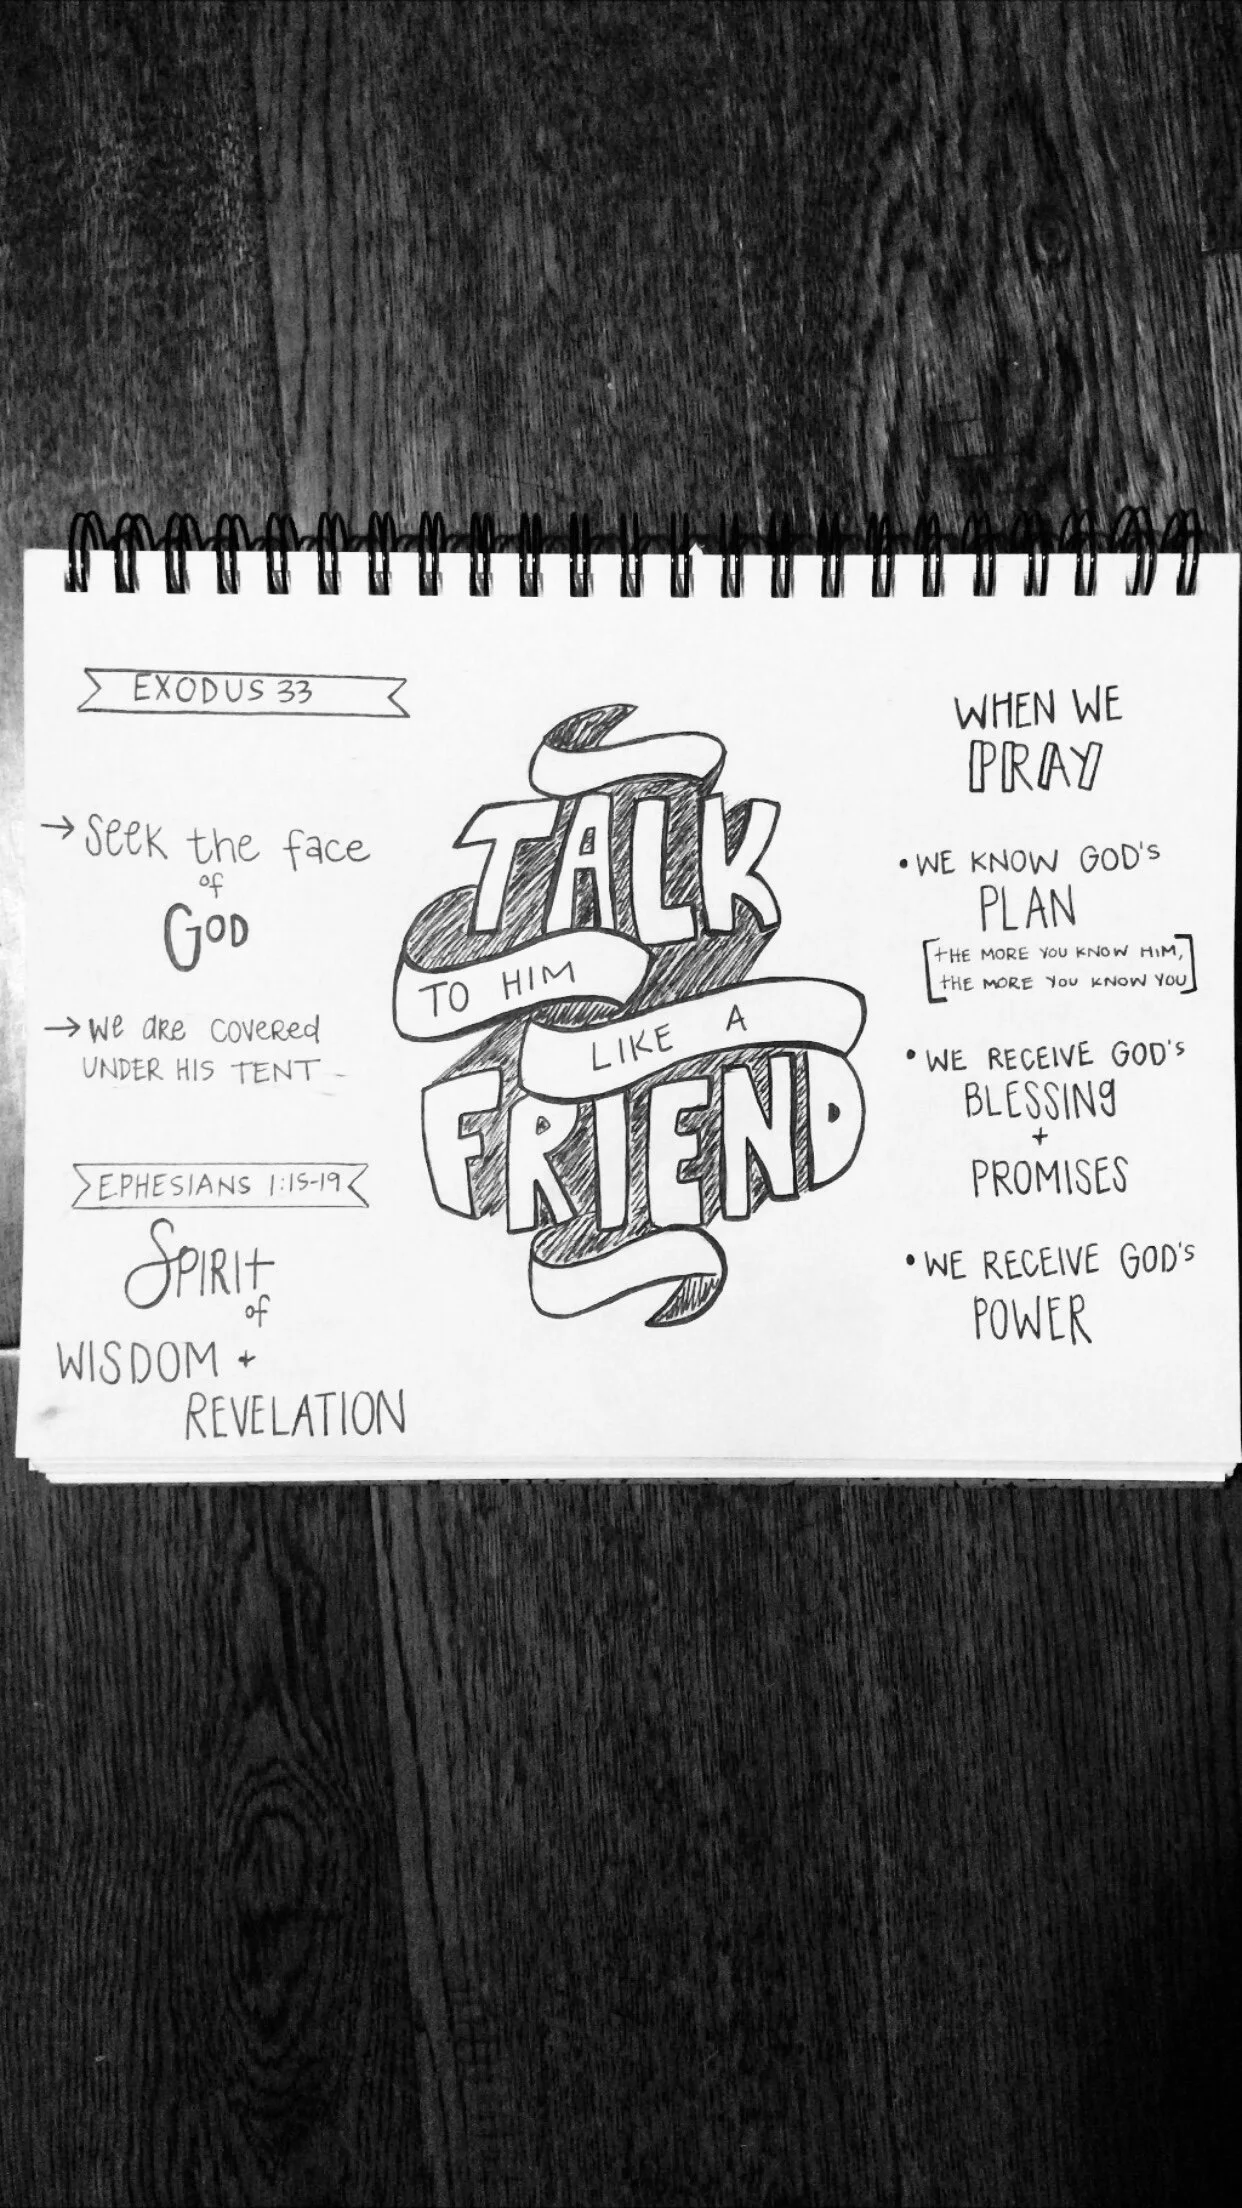 EXODUS 33
→ Seek the face
of
GOD
→ We are covered
UNDER HIS TENT
EPHESIANS 1:15-19
SPIRIT
of
WISDOM +
REVELATION
TALK
TO HIM
LIKE A
FRIEND
WHEN WE
PRAY
• WE KNOW GOD'S
PLAN
[THE MORE YOU KNOW HIM,
THE MORE YOU KNOW YOU]
• WE RECEIVE GOD'S
BLESSING
+
PROMISES
• WE RECEIVE GOD'S
POWER